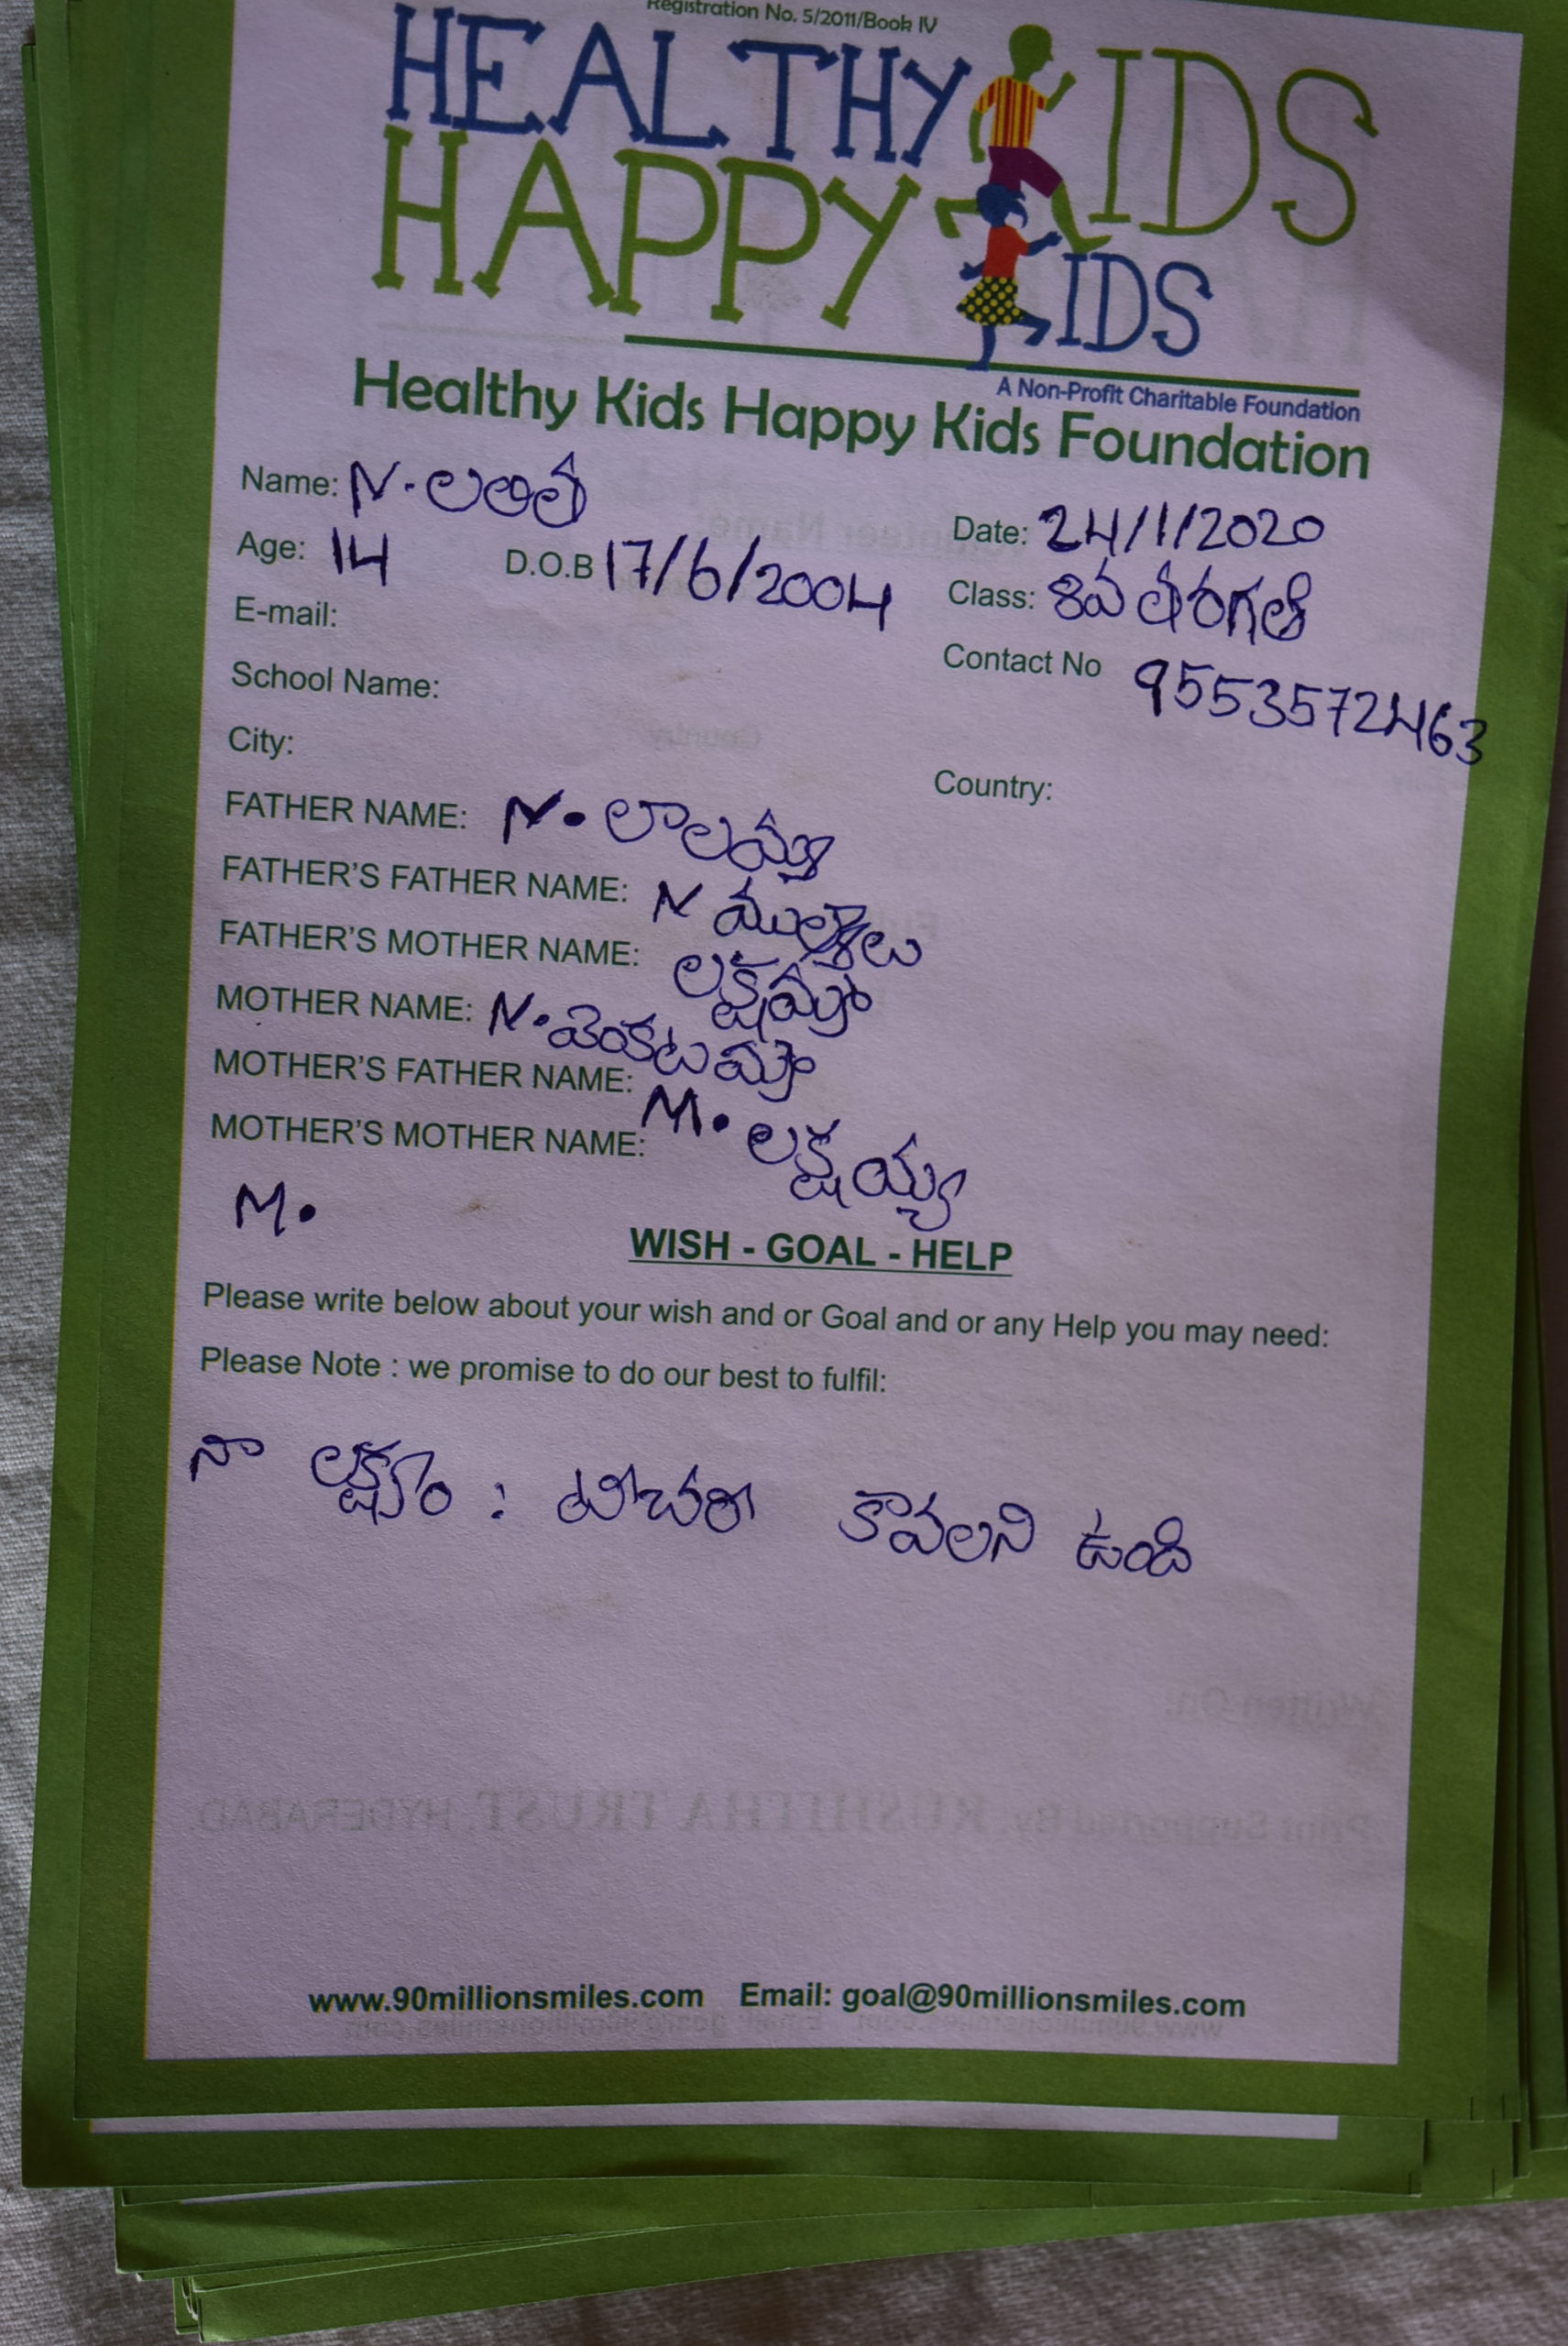 Registration No. 5/2011/Book IV
HEALTHY KIDS
HAPPY KIDS
A Non-Profit Charitable Foundation
Healthy Kids Happy Kids Foundation
Name: N. లలిత
Date: 24/1/2020
Age: 14 D.O.B 17/6/2004
Class: 8వ తరగతి
E-mail:
Contact No 9553572463
School Name:
City:
Country:
FATHER NAME: N.
FATHER'S FATHER NAME: N
FATHER'S MOTHER NAME: లక్ష్మమ్మ
MOTHER NAME: N. వెంకటమ్మ
MOTHER'S FATHER NAME: M. లక్ష్మయ్య
MOTHER'S MOTHER NAME:
M.
WISH - GOAL - HELP
Please write below about your wish and or Goal and or any Help you may need:
Please Note : we promise to do our best to fulfil:
నా లక్ష్యం : టీచర్ కావలని ఉంది
www.90millionsmiles.com Email: goal@90millionsmiles.com